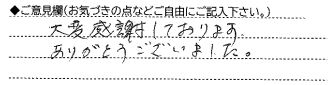 ◆ご意見欄(お気づきの点などご自由にご記入下さい。)
大変感謝しております。
ありがとうございました。